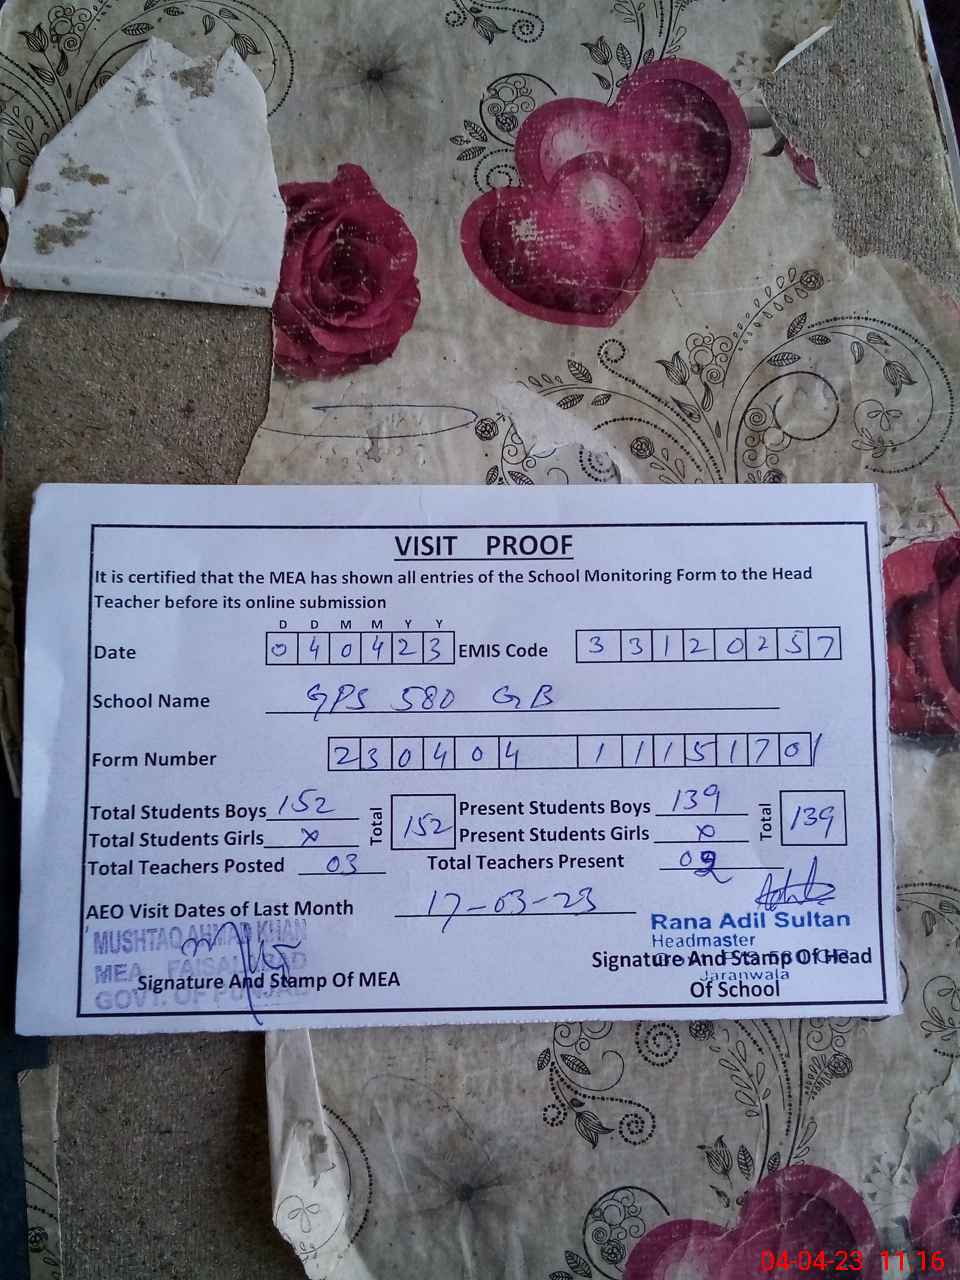 VISIT PROOF
It is certified that the MEA has shown all entries of the School Monitoring Form to the Head
Teacher before its online submission
D D M M Y Y
Date 0 4 0 4 2 3 EMIS Code 3 3 1 2 0 2 5 7
School Name GPS 580 GB
Form Number 2 3 0 4 0 4 1 1 1 5 1 7 0 1
Total Students Boys 152 Total 152 Present Students Boys 139 Total 139
Total Students Girls x Present Students Girls x
Total Teachers Posted 03 Total Teachers Present 02
AEO Visit Dates of Last Month 17-03-23
MUSHTAQ AHMAD KHAN
MEA FAISALABAD
GOVT. OF PUNJAB
Signature And Stamp Of MEA
Rana Adil Sultan
Headmaster
Jaranwala
Signature And Stamp Of Head
Of School
04-04-23 11 16